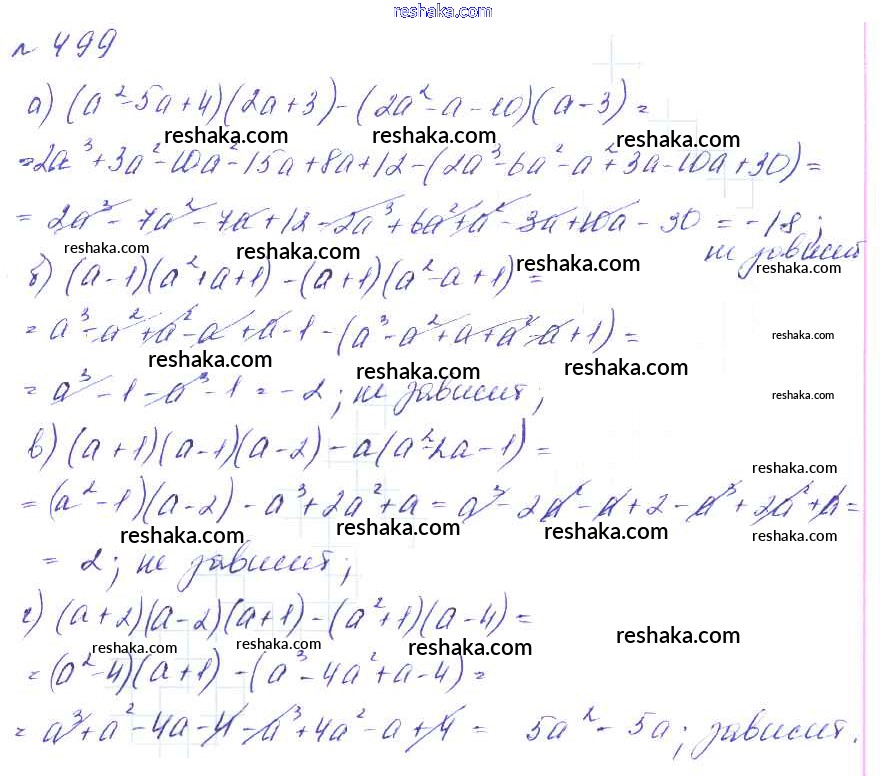 reshaka.com
№ 499
а) (a²-5a+4)(2a+3)-(2a²-a-10)(a-3)=
reshaka.com reshaka.com reshaka.com
=2a³+3a²-10a²-15a+8a+12-(2a³-6a²-a²+3a-10a+30)=
= 2a³-7a²-7a+12-2a³+6a²+a²-3a+10a-30=-18;
не зависит
reshaka.com reshaka.com reshaka.com reshaka.com
б) (a-1)(a²+a+1)-(a+1)(a²-a+1)=
= a³-a²+a²-a+a-1-(a³-a²+a+a²-a+1)=
reshaka.com
reshaka.com reshaka.com reshaka.com
= a³-1-a³-1=-2; не зависит;
reshaka.com
в) (a+1)(a-1)(a-2)-a(a²-2a-1)=
reshaka.com
= (a²-1)(a-2)-a³+2a²+a=a³-2a²-a+2-a³+2a²+a=
reshaka.com reshaka.com reshaka.com reshaka.com
= 2; не зависит;
г) (a+2)(a-2)(a+1)-(a²+1)(a-4)=
reshaka.com reshaka.com reshaka.com reshaka.com
= (a²-4)(a+1)-(a³-4a²+a-4)=
= a³+a²-4a-4-a³+4a²-a+4= 5a²-5a; зависит.